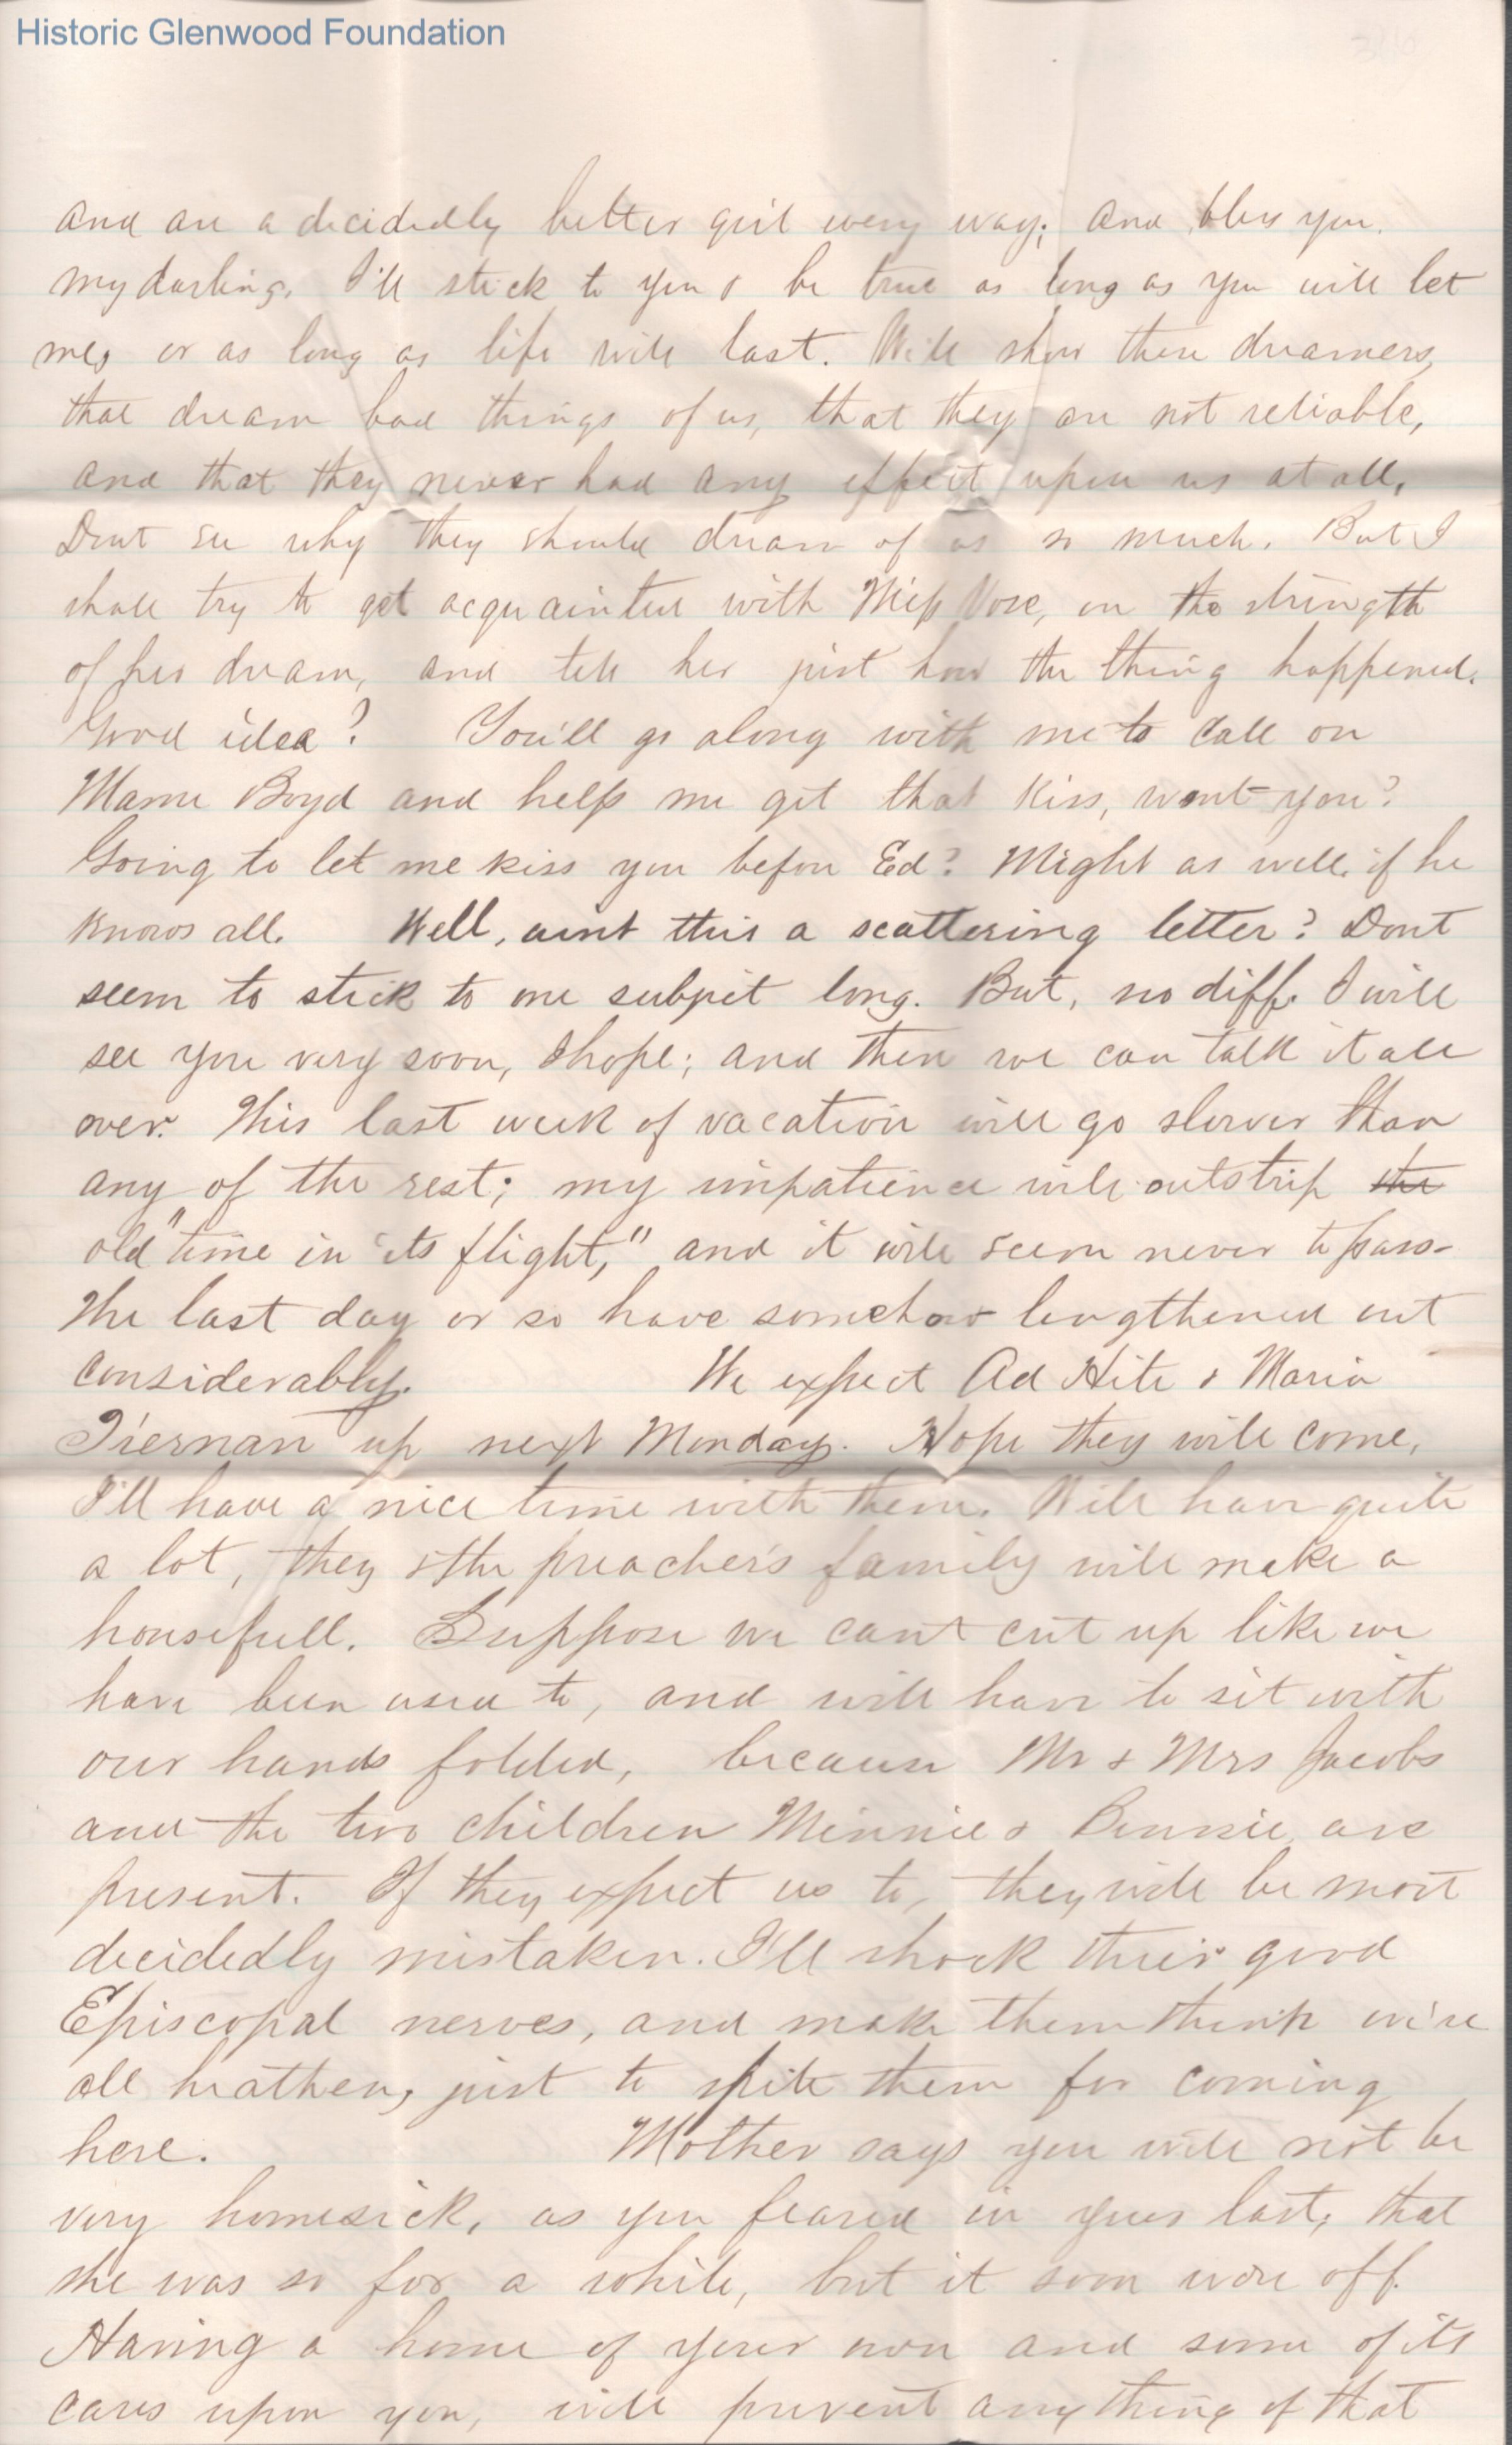 Historic Glenwood Foundation
and are a decidedly better girl every way; and bless you
my darling, I'll stick to you & be true as long as you will let
me, or as long as life will last. Will show these dreamers,
that dream bad things of us, that they are not reliable,
and that they never had any effect upon us at all.
Dont see why they should dream of us so much. But I
shall try to get acquainted with Miss Vose, on the strength
of her dream, and tell her just how the thing happened.
Good idea? You'll go along with me to call on
Mame Boyd and help me get that kiss, wont you?
Going to let me kiss you before Ed? Might as well, if he
knows all. Well, aint this a scattering letter? Dont
seem to stick to one subject long. But, no diff. I will
see you very soon, I hope; and then we can talk it all
over. This last week of vacation will go slower than
any of the rest; my impatience will outstrip the
old "time in its flight," and it will seem never to pass.
The last day or so have somehow lengthened out
considerably. We expect Ad Hite & Maria
Tiernan up next Monday. Hope they will come,
I'll have a nice time with them. Will have quite
a lot, they & the preacher's family will make a
housefull. Suppose we cant cut up like we
have been used to, and will have to sit with
our hands folded, because Mr & Mrs Jacobs
and the two children Minnie & Bennie are
present. If they expect us to, they will be most
decidedly mistaken. I'll shock their good
Episcopal nerves, and make them think we're
all heathen, just to spite them for coming
here. Mother says you will not be
very homesick, as you feared in your last; that
she was so for a while, but it soon wore off.
Having a home of your own and some of its
cares upon you, will prevent anything of that